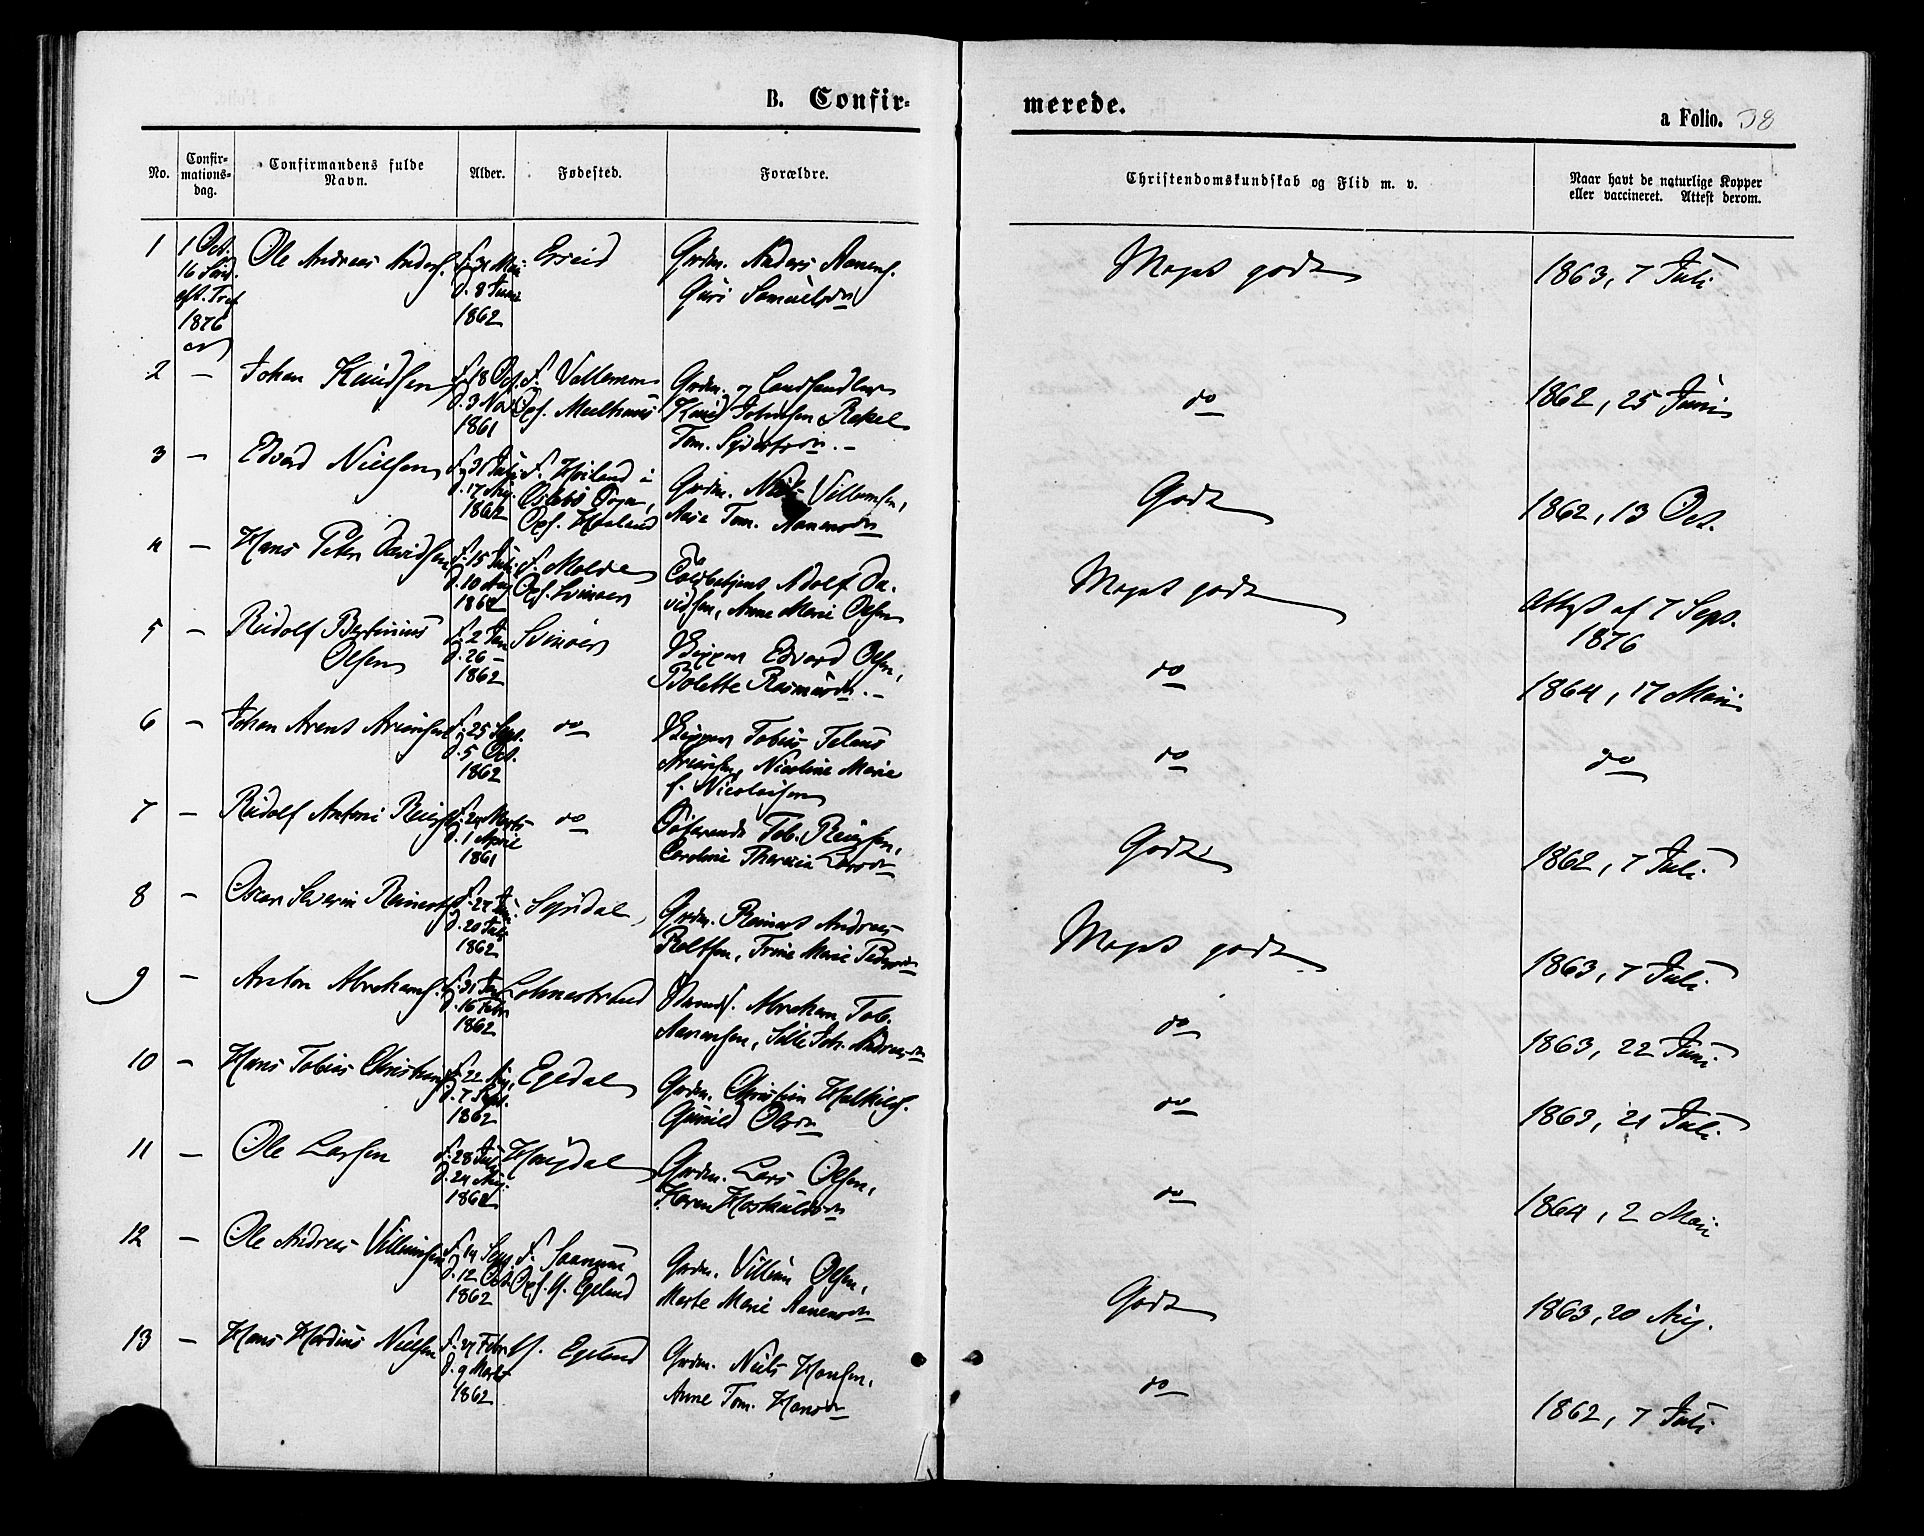 B. Confir-
merede.
a Folio. 38
No.
Confir-
mations-
dag.
Confirmandens fulde
Navn.
Alder.
Fødested.
Forældre.
Christendomskundskab og Flid m. v.
Naar havt de naturlige Kopper
eller vaccineret. Attest derom.
1
1 Oct.
16 Sønd.
eft. Tref
1876
Ole Andreas Anders.
f. 31 Mai
d. 8 Juni
1862
Erseid
Grdm. Anders Aanens.
Guri Samuelsdn
Meget godt
1863, 7 Juli
2 —
Johan Knudsen
f. 18 Oct.
d. 3 Nov
1861
F. Vallemm
Opf. Meelhuus
Grdm. og Landhandler
Knud Johnsen & Rakel
Tom. Sjverts dn. –
do
1862, 25 Juni
3 —
Edvard Nielsen
f. 31 Juli
d. 17 Aug.
1862
F. Høiland i
Oslebø Sogn,
Opf. Høiland
Grdm. Niels Villumsen,
Aase Tom. Aanensdn
Godt
1862, 13 Oct.
4 —
Hans Peter Davidsen
f. 15 Juli
d. 10 Aug
1862
F. Molde
Opf. Svinøer
Toldbetjent Adolf Da-
vidsen, Anne Marie Olsen
Meget godt
Attest af 7 Sept.
1876
5 —
Rudolf Bertinius
Olsen
f. 2 Jan
d. 26 –
1862
Svinøer
Skipper Edvard Olsen,
Bolette Rasmusdn. –
do
1864, 17 Mai
6 —
Johan Arent Ariansen
f. 25 Sept.
d. 5 Oct.
1862
do
Skipper Tobias Telaus
Ariansen, Nicoline Marie
f. Nicolaisen
do
do
7 —
Rudolf Antoni Reiers.
f. 24 Marts
d. 1 April
1861
do
Søfarende Tob. Reiersen,
Caroline Theresia Larsdn
Godt
1862, 7 Juli
8 —
Oscar Severin Reinerts
d. 20 Juli
1862
Sysdal
Grdm. Reinert Andreas
Roltsen, Trine Marie Pedersdn
Meget godt
1863, 7 Juli
9 —
Anton Abrahams.
f. 31 Jan
d. 16 Febr
1862
Lohnestrand
Strands. Abraham Tob.
Aanensen, Sille Joh. Andreasdn
do
1863, 22 Juni
10 —
Hans Tobias Christians
f. 22 Aug.
d. 7 Sept.
1862
Egedal
Grdm. Christian Halkilds.
Gunild Olsdn
do
1863, 21 Juli
11 —
Ole Larsen
f. 28 Juli
d. 24 Aug.
1862
Haugdal
Grdm. Lars Olsen,
Karen Hoskuldsdn
do
1864, 2 Mai
12 —
Ole Andreas Villumsen
f. 14 Sept
d. 12 Oct.
1862
F. Saanum
Opf. Y. Egeland
Grdm. Villum Olsen,
Marte Marie Aanensdn
Godt
1863, 20 Aug.
13 —
Hans Mardius Nielsen
f. 27 Febr
d. 9 Marts
1862
Y. Egeland
Grdm. Niels Hansen,
Anne Tom. Hansdn
do
1862, 7 Juli